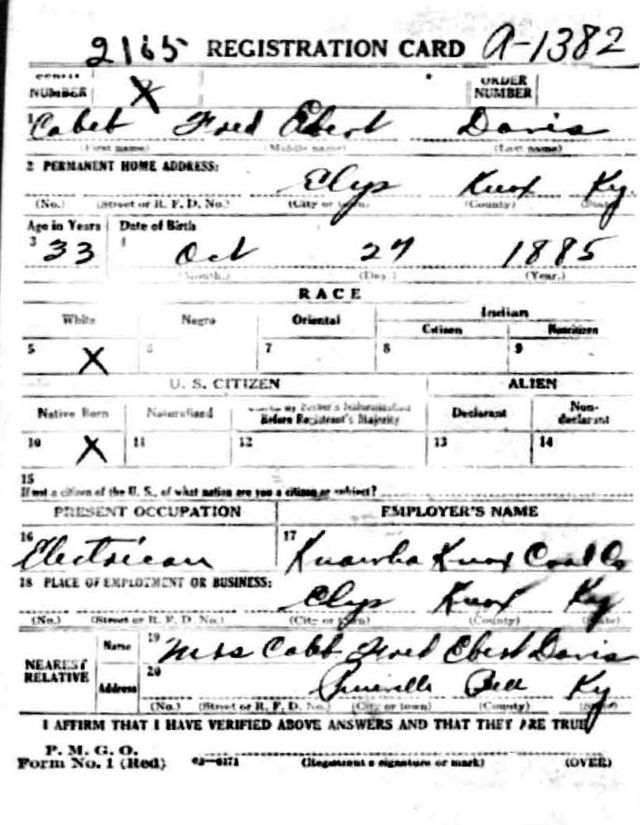 2165 REGISTRATION CARD A-1382
SERIAL NUMBER X ORDER NUMBER
1 Cabet Fred Ebert Davis
(First name) (Middle name) (Last name)
2 PERMANENT HOME ADDRESS:
Elys Knox Ky.
(No.) (Street or R. F. D. No.) (City or town) (County) (State)
Age in Years Date of Birth
3 33 4 Oct 27 1885
(Month.) (Day.) (Year.)
RACE
White Negro Oriental Indian
Citizen Noncitizen
5 X 6 7 8 9
U. S. CITIZEN ALIEN
Native Born Naturalized Citizen by Father's Naturalization Before Registrant's Majority Declarant Non-declarant
10 X 11 12 13 14
15
If not a citizen of the U. S., of what nation are you a citizen or subject?
PRESENT OCCUPATION EMPLOYER'S NAME
16 Electrician 17 Knox Coal Co
18 PLACE OF EMPLOYMENT OR BUSINESS:
Elys Knox Ky
(No.) (Street or R. F. D. No.) (City or town) (County) (State)
NEAREST RELATIVE Name 19 Mrs Cabet Fred Ebert Davis
Address 20 Pineville Bell Ky
(No.) (Street or R. F. D. No.) (City or town) (County) (State)
I AFFIRM THAT I HAVE VERIFIED ABOVE ANSWERS AND THAT THEY ARE TRUE
P. M. G. O.
Form No. 1 (Red) 03—6171 (Registrant's signature or mark) (OVER)